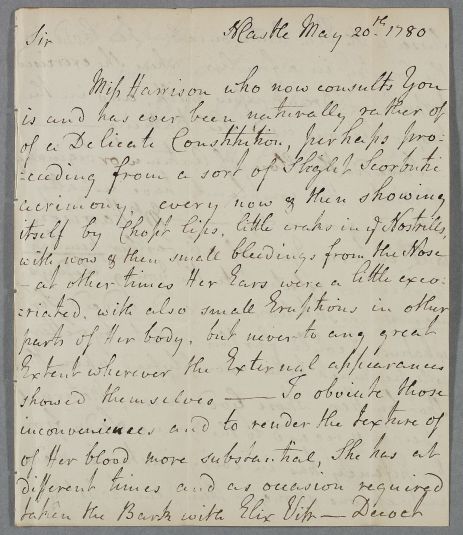 Sir
NCastle May 20th. 1780
Miss Harrison who now consults You
is and has ever been naturally rather of
of a Delicate Constitution, perhaps pro=
=ceeding from a sort of Slight Scorbutic
acrimony, every now & then showing
itself by Chopt lips, little cracks in ye Nostrills,
with now & then small bleedings from the Nose
– at other times Her Ears were a little exco=
=riated, with also small Eruptions in other
parts of Her body, but never to any great
Extent wherever the External appearances
showed themselves — To obviate those
inconveniences and to render the texture of
of Her blood more substantial, She has at
different times and as occasion required
taken the Bark with Elix Vitr — Decoct